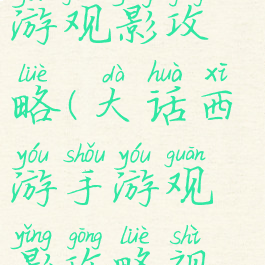 游观影攻
lüè dà huà xī
略(大话西
yóu shǒu yóu guān
游手游观
yǐng gōng lüè shì
影攻略视